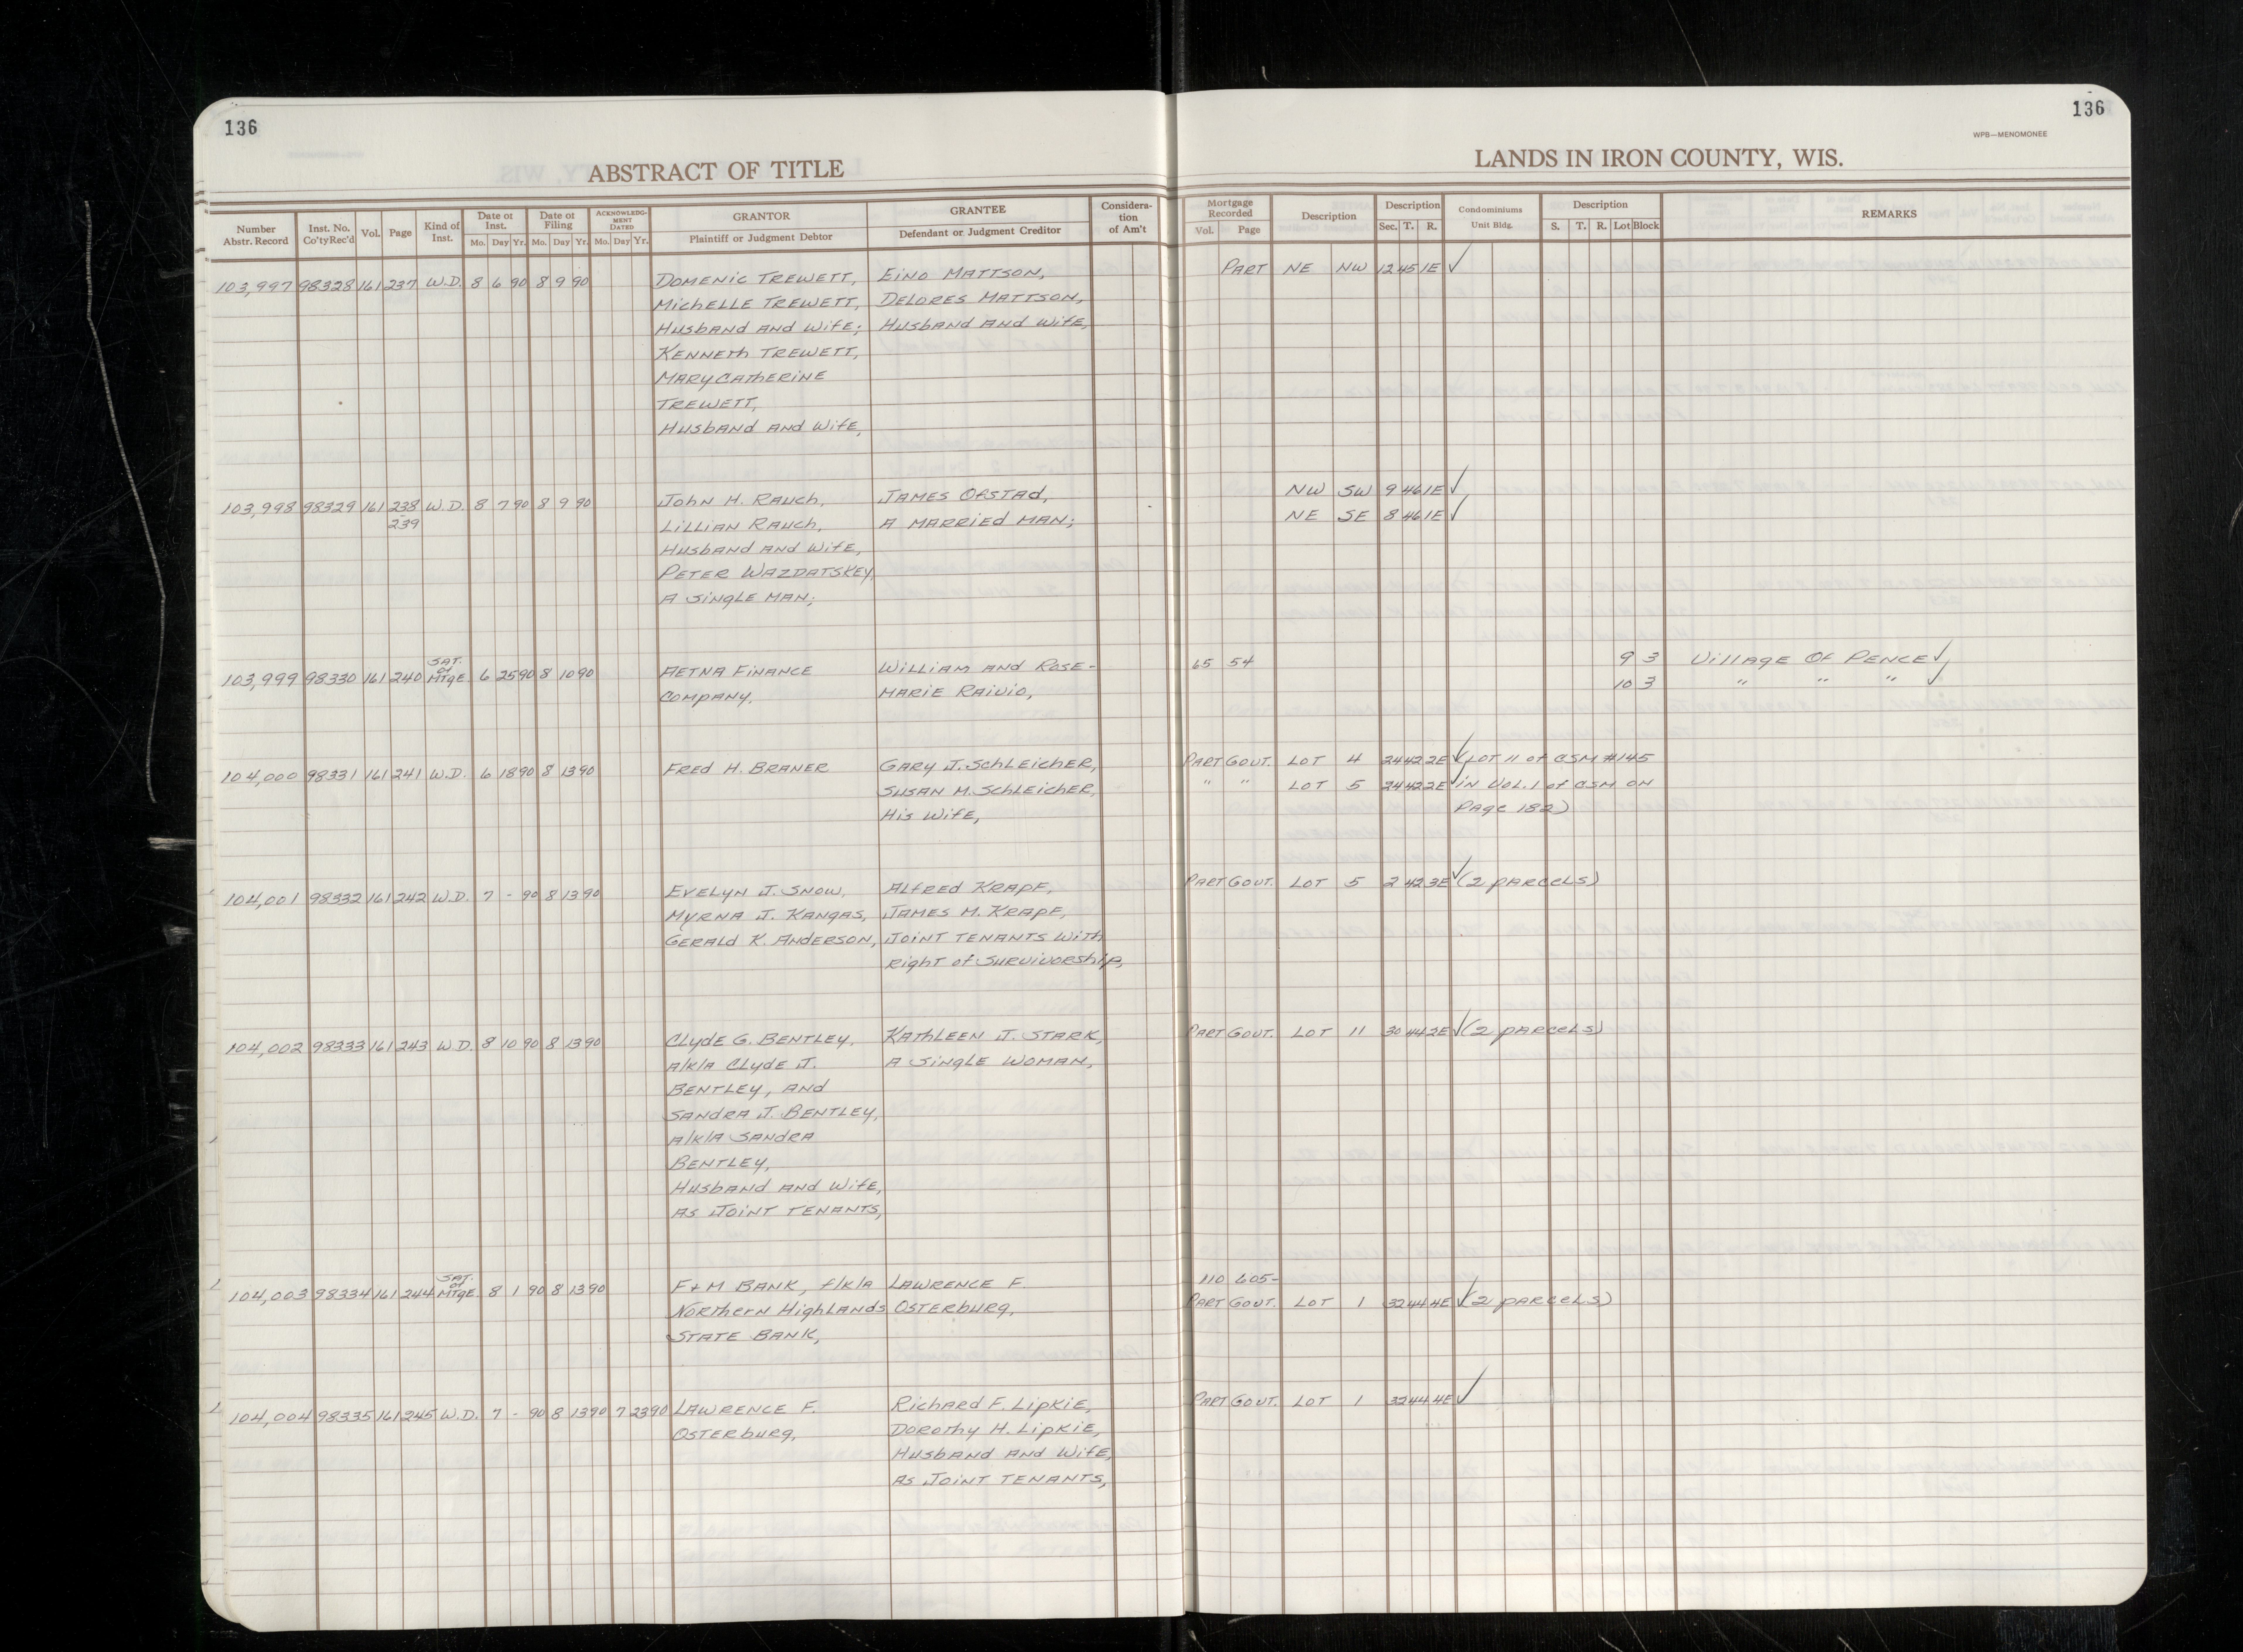 136
136
WPB—MENOMONEE
ABSTRACT OF TITLE
LANDS IN IRON COUNTY, WIS.
Number Abstr. Record | Inst. No. Co'ty Rec'd | Vol. | Page | Kind of Inst. | Date of Inst. Mo. Day Yr. | Date of Filing Mo. Day Yr. | ACKNOWLEDGMENT DATED Mo. Day Yr. | GRANTOR Plaintiff or Judgment Debtor | GRANTEE Defendant or Judgment Creditor | Consideration of Am't | Mortgage Recorded Vol. Page | Description | Description Sec. T. R. | Condominiums Unit Bldg. | Description S. T. R. Lot Block | REMARKS
103,997 98328 161 237 W.D. 8 6 90 8 9 90 DOMENIC TREWETT, EINO MATTSON, PART NE NW 12 45 1E ✓
MICHELLE TREWETT, DELORES MATTSON,
HUSBAND AND WIFE; HUSBAND AND WIFE,
KENNETH TREWETT,
MARY CATHERINE
TREWETT,
HUSBAND AND WIFE,
103,998 98329 161 238 W.D. 8 7 90 8 9 90 JOHN H. RAUCH, JAMES OFSTAD, NW SW 9 46 1E ✓
239 LILLIAN RAUCH, A MARRIED MAN; NE SE 8 46 1E ✓
HUSBAND AND WIFE,
PETER WAZDATSKEY,
A SINGLE MAN;
103,999 98330 161 240 SAT. of MTGE. 6 25 90 8 10 90 AETNA FINANCE WILLIAM AND ROSE- 65 54 9 3 VILLAGE OF PENCE ✓
COMPANY, MARIE RAIVIO, 10 3 " " " ✓
104,000 98331 161 241 W.D. 6 18 90 8 13 90 FRED H. BRANER GARY J. SCHLEICHER, PART GOVT. LOT 4 24 42 2E ✓ (LOT 11 of CSM #145
SUSAN M. SCHLEICHER, " " LOT 5 24 42 2E ✓ IN VOL. 1 of CSM ON
HIS WIFE, PAGE 182)
104,001 98332 161 242 W.D. 7 - 90 8 13 90 EVELYN J. SNOW, ALFRED KRAPF, PART GOVT. LOT 5 2 42 3E ✓ (2 PARCELS)
MYRNA J. KANGAS, JAMES M. KRAPF,
GERALD K. ANDERSON, JOINT TENANTS WITH
RIGHT of SURVIVORSHIP,
104,002 98333 161 243 W.D. 8 10 90 8 13 90 CLYDE G. BENTLEY, KATHLEEN J. STARK, PART GOVT. LOT 11 30 44 2E ✓ (2 PARCELS)
A/K/A CLYDE J. A SINGLE WOMAN,
BENTLEY, AND
SANDRA J. BENTLEY,
A/K/A SANDRA
BENTLEY,
HUSBAND AND WIFE,
AS JOINT TENANTS,
104,003 98334 161 244 SAT. of MTGE. 8 1 90 8 13 90 F+M BANK, f/k/a LAWRENCE F. 110 605-
NORTHERN HIGHLANDS OSTERBURG, PART GOVT. LOT 1 32 44 4E ✓ (2 PARCELS)
STATE BANK,
104,004 98335 161 245 W.D. 7 - 90 8 13 90 7 23 90 LAWRENCE F. RICHARD F. LIPKIE, PART GOVT. LOT 1 32 44 4E ✓
OSTERBURG, DOROTHY H. LIPKIE,
HUSBAND AND WIFE,
AS JOINT TENANTS,